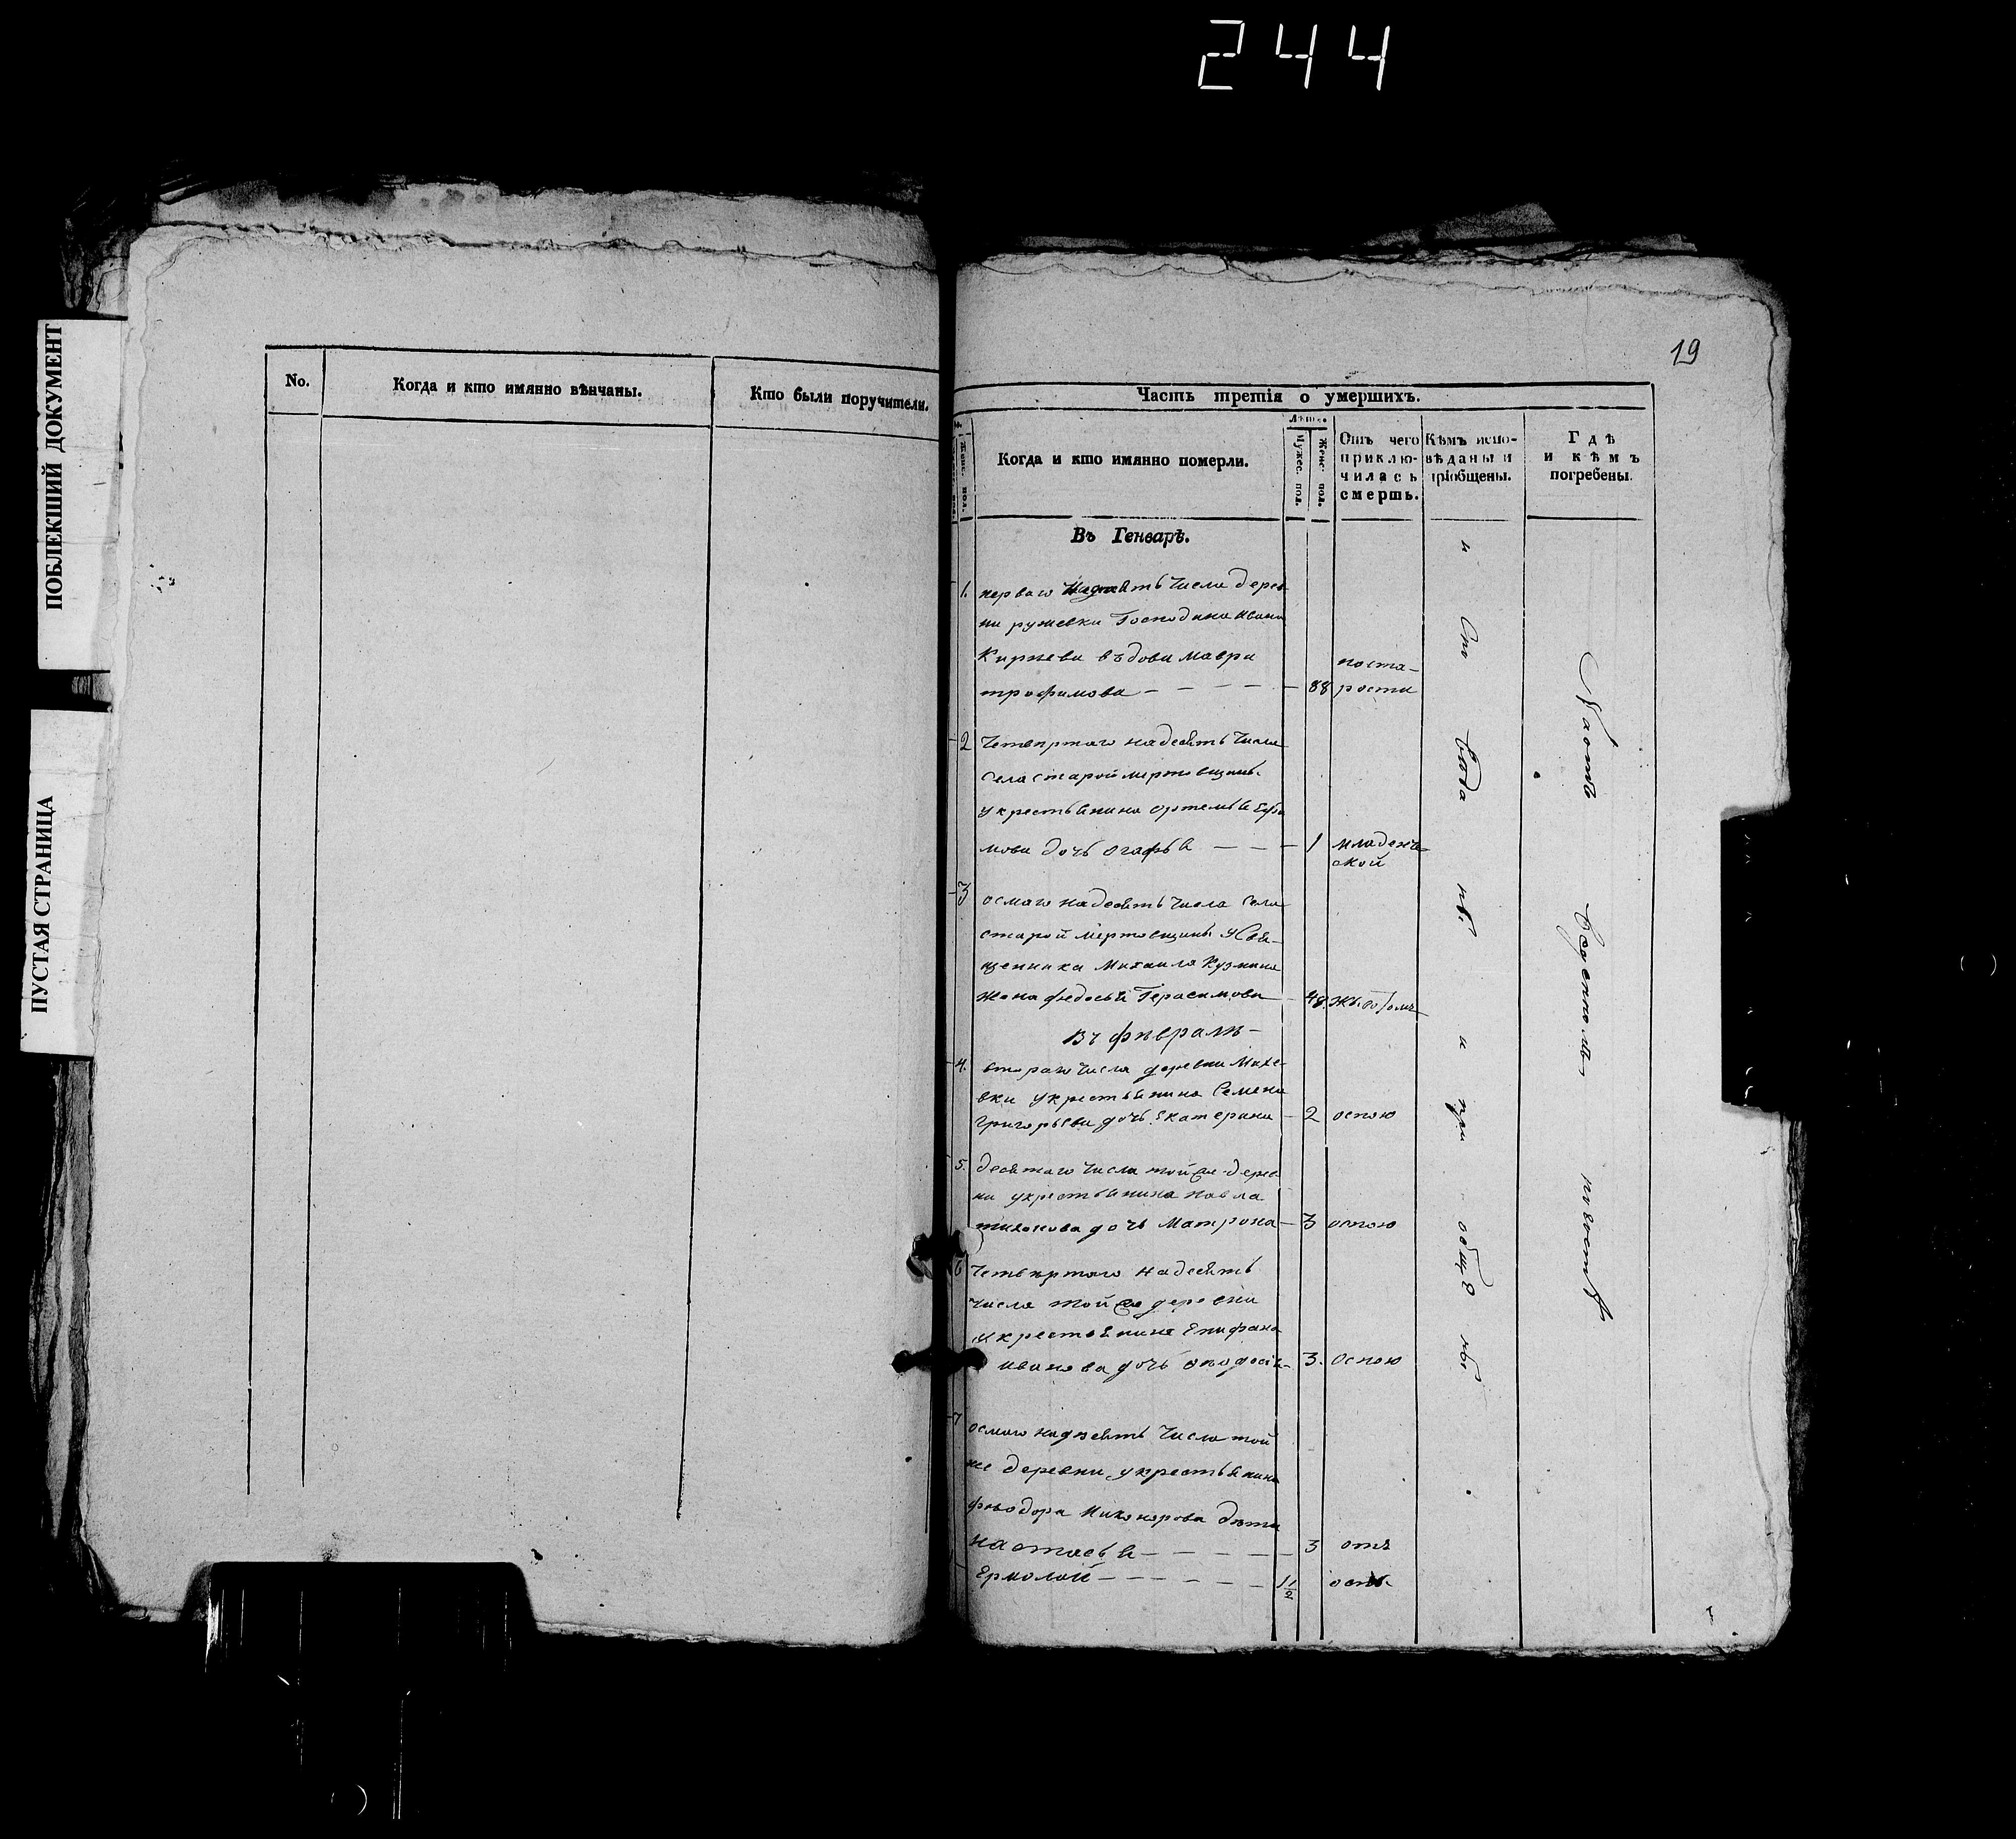 244
ПОБЛЕКШИЙ ДОКУМЕНТ
ПУСТАЯ СТРАНИЦА
No.
Когда и кто имянно вѣнчаны.
Кто были поручители.
19
Часть третія о умершихъ.
Жене. пол.
Когда и кто имянно померли.
Лѣта
Мужес. пол.
Жене. пол.
Отъ чего приклю-
чилась
смерть.
Кѣмъ испо-
вѣданы и
пріобщены.
Гдѣ
и кѣмъ
погребены.
Въ Генварѣ.
1. перваго надесять числа дерев
ни ружевки Господина Ивана
Киреева въдова мавра
трофимова — 88 поста-
рости
2 Четвертаго надесять числа
Села старой мертовщины
укрестьянина ортемья Ефи
мова дочь огафья — 1 младенче
ской
3 осмаго надесять числа Села
старой мертовщины уСвя-
щенника Михаила Кузмина
жена федосья Герасимова — 48.
Въ февралѣ
4. втораго числа деревни Михе-
вки укрестьянина Семена
Григорьева дочь екатерина — 2 оспою
5. десятаго числа тойже дерев
ни укрестьянина павла
тихонова дочь матрона — 3 оспою
6 Четвертаго надесять
числа тойже деревни
укрестьянина Епифана
иванова дочь — 3. оспою
7 осмаго надесять числа той
же деревни укрестьянина
фьодора Никонорова дети
настасья — 3 отъ
Ермолай — 1 1/2 оспы
исповѣданы и пріобщены
На отведенномъ мѣстѣ